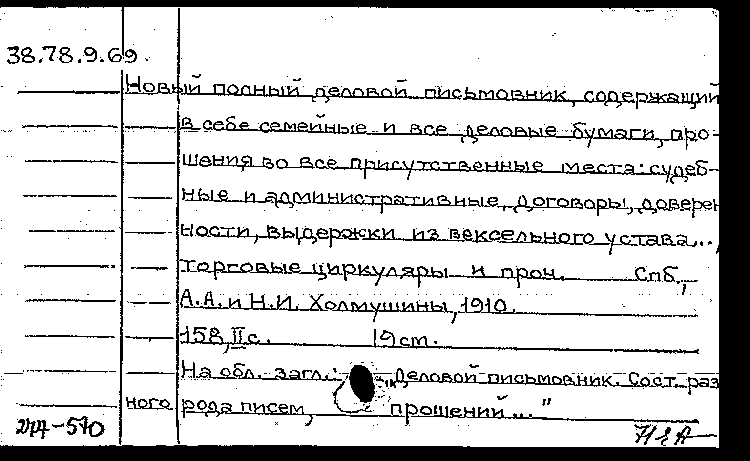 38.78.9.69.
Новый полный деловой письмовник, содержащий
в себе семейные и все деловые бумаги, про-
шения во все присутственные места: судеб-
ные и административные, договоры, доверен
ности, выдержки из вексельного устава...,
торговые циркуляры и проч. Спб.,
А.А. и Н.И. Холмушины, 1910.
158, II с. 19 cm.
На обл. загл.: "Деловой письмовник. Сост. раз
ного рода писем, прошений..."
274-570